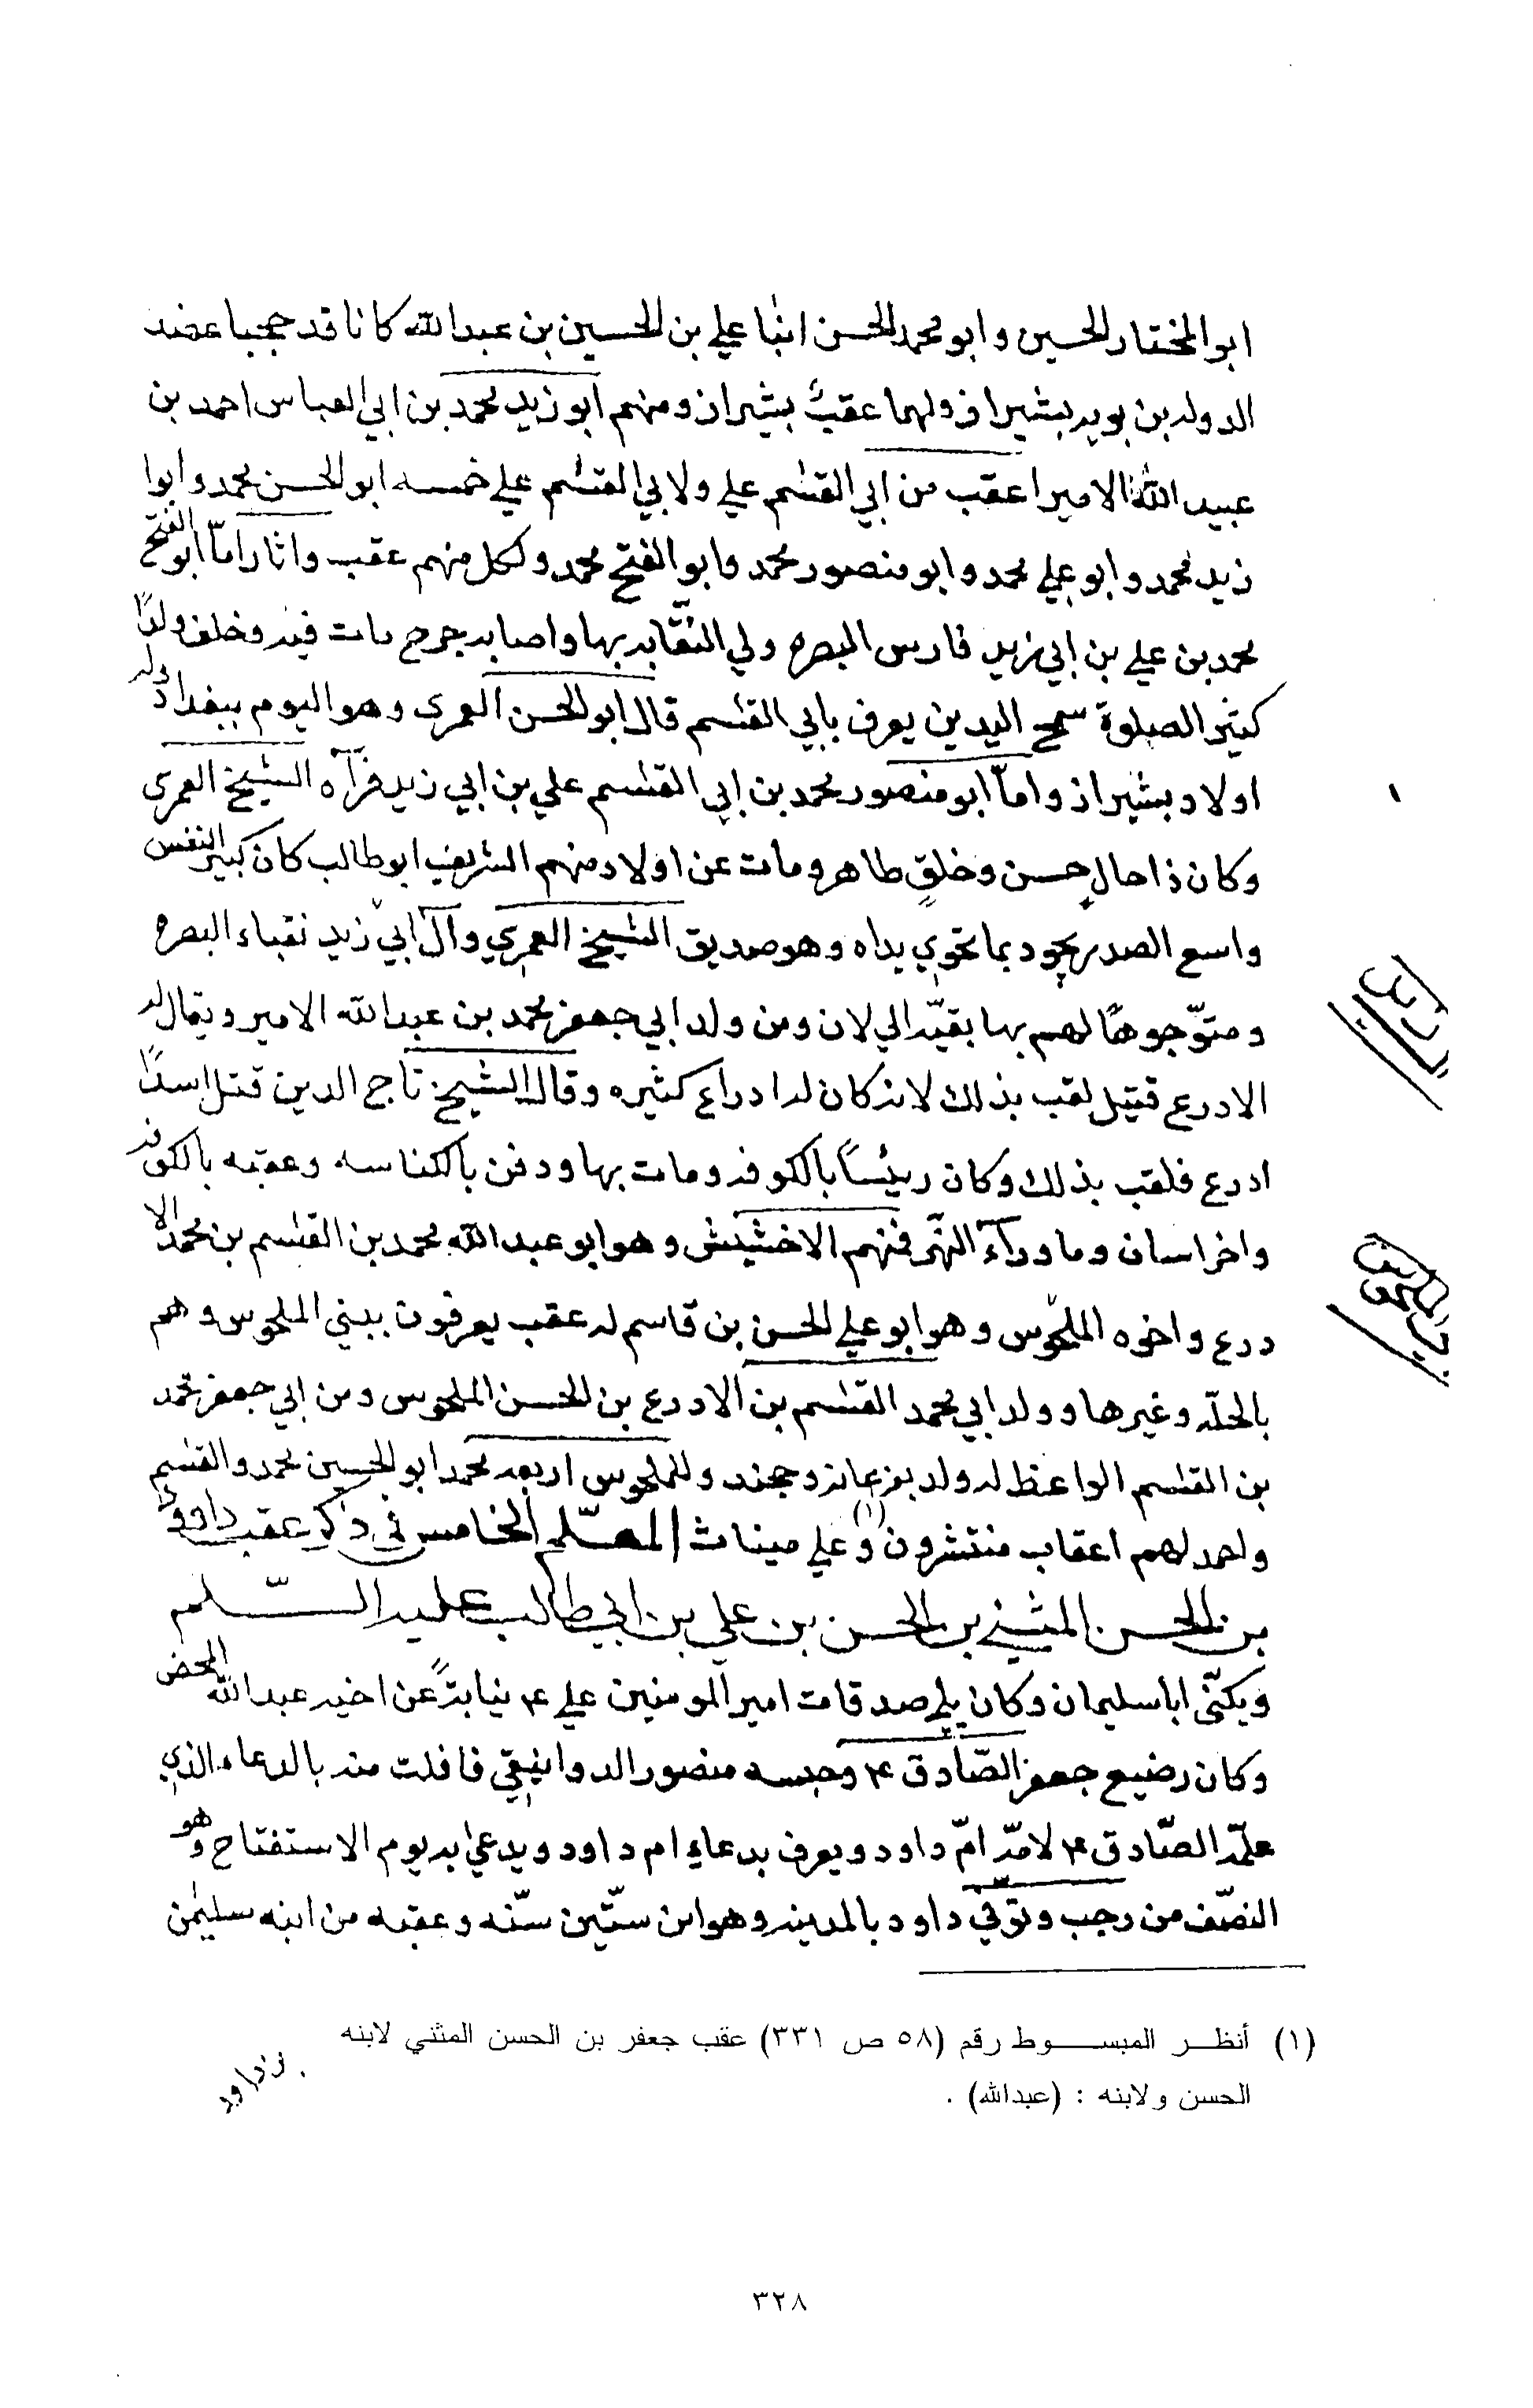 ابو المختار الحسين وابو محمد الحسن ابنا علي بن الحسين بن عبدالله كانا قد حجبا عضد
الدوله بن بويه بشيراز ولهما عقبٌ بشيراز ومنهم ابو زيد محمد بن ابي العباس احمد بن
عبيد الله الامير اعقب من ابي القسٰم علي ولابي القسٰم علي خمسه ابو الحسن محمد وابوا
زيد محمد وابو علي محمد وابو منصور محمد وابو الفتح محمد ولكل منهم عقب واثار امّا ابو الفتح
محمد بن علي بن ابي زيد فارس البصره ولي النقّابه بها واصابه جرح مات فيه وخلف ولدًا
كثير الصلوة سمح اليدين يعرف بابي القسٰم قال ابو الحسن العمرى وهو اليوم ببغداد وله
اولاد بشيراز وامّا ابو منصور محمد بن ابي القسٰم علي بن ابي زيد فرآه الشيخ العمرى
وكان ذا حالٍ حسن وخلقٍ طاهر ومات عن اولاد منهم الشريف ابو طالب كان كبير النفس
واسع الصدر يجود بما تحوي يداه وهو صديق الشيخ العمري وآل ابي زيد نقباء البصره
ومتوّجوها لهم بها بقيّه الي لان ومن ولد ابي جعفر محمد بن عبدالله الامير ويقال له
الادرع قتيل لقب بذلك لانه كان له ادراع كثيره وقال الشيخ تاج الدين قتل اسدًا
ادرع فلقب بذلك وكان رئيسًا بالكوفه ومات بها ودفن بالكناسه وعقبه بالكوفه
واخراسان وما ورآء النهر فمنهم الاخشيش وهو ابو عبد الله محمد بن القسٰم بن محمد الا
درع واخوه الملحوس وهو ابو علي الحسن بن قاسم له عقب يعرفون ببني الملحوس وهم
بالحلّه وغيرها وولد ابي محمد القسٰم بن الادرع بن الحسن الملحوس ومن ابي جعفر محمد
بن القسٰم الواعظ له ولد بفرغانه وجند وللملحوس اربعه محمد ابو الحسين محمد والقسٰم
واحمد لهم اعقاب منتشرون (١) وعلي ميناث المعلم الخامس في ذكر عقب داوود
بن الحسن المثني بن الحسن بن علي بن ابي طالب عليه السّلم
ويكنّى ابا سليمان وكان يلي صدقات امير المومنين علي ع نيابةً عن اخيه عبدالله المحض
وكان رضيع جعفر الصّادق ع وحبسه منصور الدوانيقي فافلت منه بالدعاء الذي
علمّه الصّادق ع لامّه امّ داود ويعرف بدعاء ام داود ويدعي به يوم الاستفتاح وهو
النصّف من رجب وتوّفي داود بالمدينه وهو ابن ستّين سنّه وعقبه من ابنه سليمٰن
(١) أنظر المبسوط رقم (٥٨ ص ٣٣١) عقب جعفر بن الحسن المثني لابنه
الحسن ولابنه : (عبدالله) .
٣٢٨